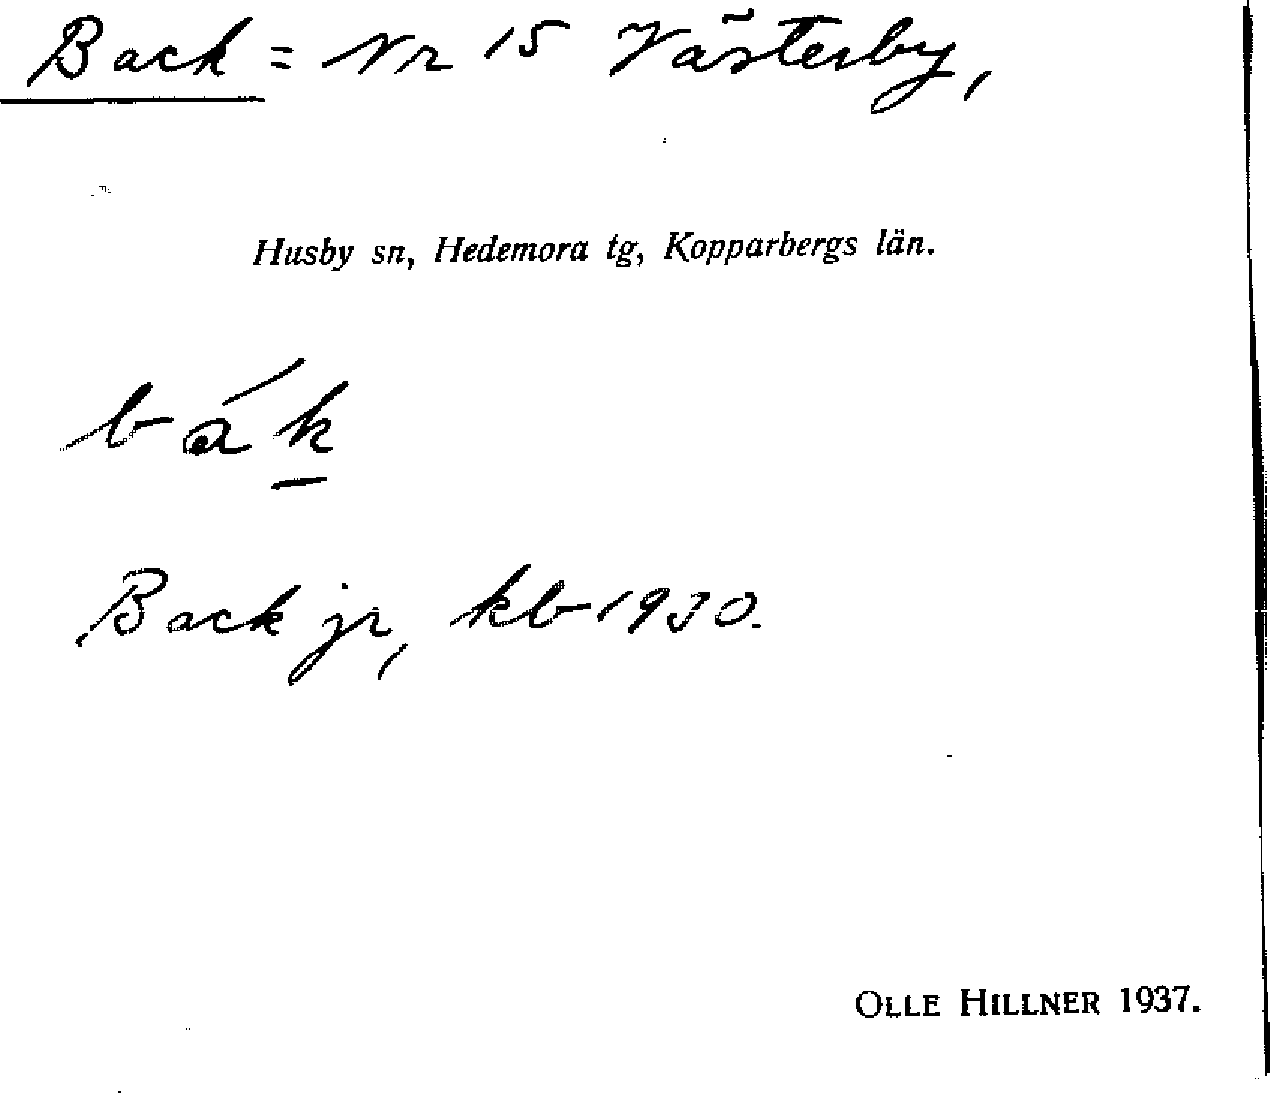 Back = Nr 15 Västerby,
Husby sn, Hedemora tg, Kopparbergs län.
bák
Back jr, kb 1930.
OLLE HILLNER 1937.